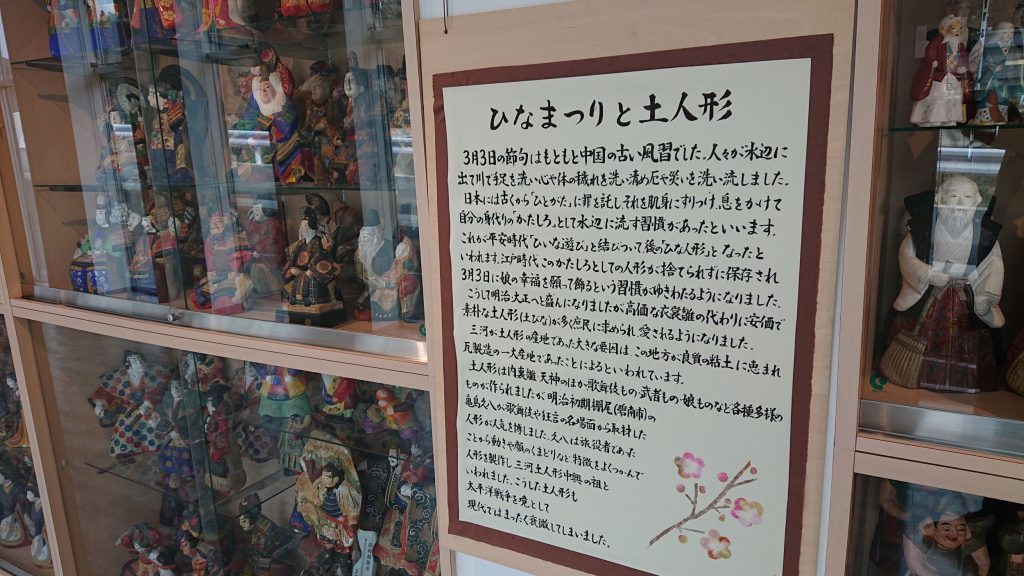 ひなまつりと土人形
3月3日の節句はもともと中国の古い風習でした。人々が水辺に
出て川で手足を洗い心や体の穢れを洗い清め厄や災いを洗い流しました。
日本には古くから「ひとがた」に罪を託しそれを肌身にすりつけ、息をかけて
自分の身代りの「かたしろ」として水辺に流す習慣があったといいます。
これが平安時代「ひいな遊び」と結びついて後の「ひな人形」となったと
いわれます。江戸時代、このかたしろとしての人形が捨てられずに保存され
3月3日に娘の幸福を願って飾るという習慣がゆきわたるようになりました。
こうして明治大正へと盛んになりましたが高価な衣裳雛の代わりに安価で
素朴な土人形(土びな)が多く庶民に求められ愛されるようになりました。
三河が土人形の産地であった大きな要因は、この地方が良質の粘土に恵まれ
瓦製造の一大産地であったことによるといわれています。
土人形は内裏雛、天神のほか歌舞伎もの、武者もの、娘ものなど各種多様の
ものが作られましたが、明治初期棚尾(碧南市)の
亀島久八が歌舞伎や狂言の名場面から取材した
人形が人気を博しました。久八は旅役者であった
ことから動きや顔のくまどりなど特徴をよくつかんで
人形を製作し三河土人形中興の祖と
いわれました。こうした土人形も
太平洋戦争を境として
現代ではまったく衰微してしまいました。